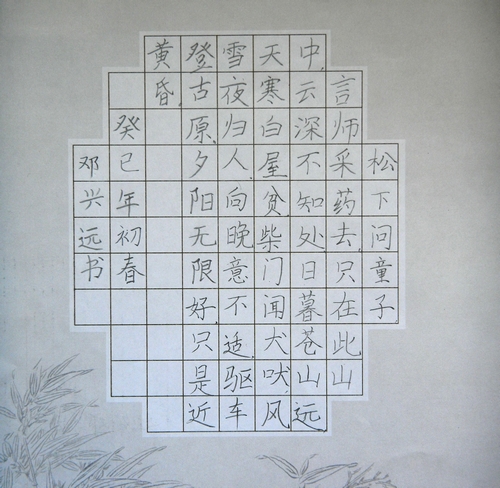 松下问童子,
言师采药去,只在此山
中,云深不知处,日暮苍山远,
天寒白屋贫,柴门闻犬吠,风
雪夜归人,向晚意不适,驱车
登古原,夕阳无限好,只是近
黄昏,
癸巳年初春
邓兴远书